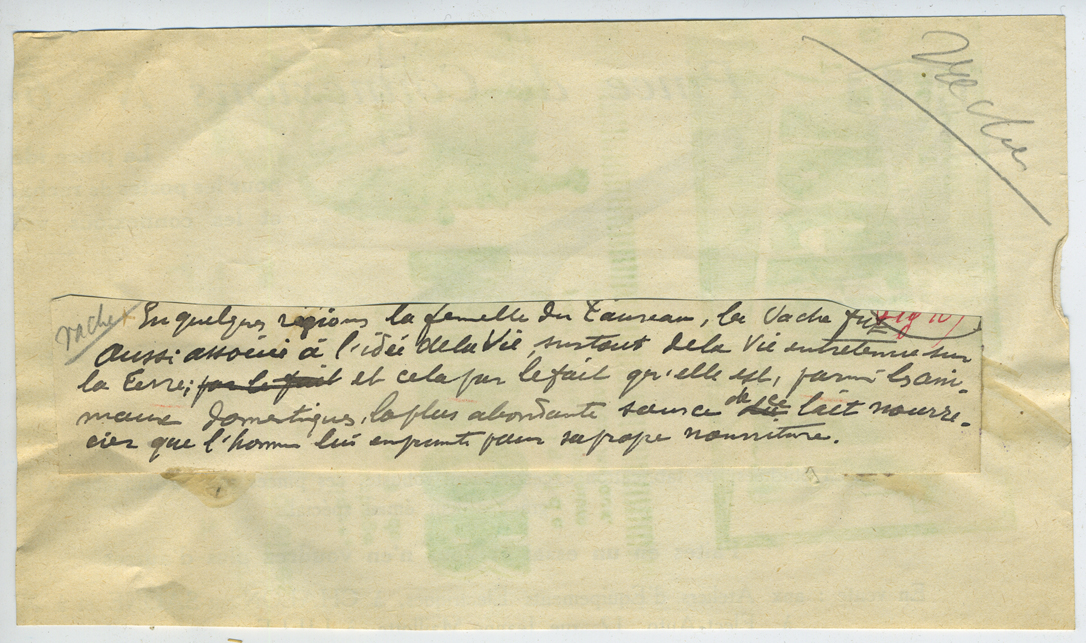 Vache
Vache En quelques régions la femelle du Taureau, la Vache fut
aussi associée à l'idée de la Vie, surtout de la Vie entretenue sur
la Terre; par le fait et cela par le fait qu'elle est, parmi les ani-
maux domestiques, la plus abondante source de ce lait nourri-
cier que l'homme lui emprunte pour sa propre nourriture.